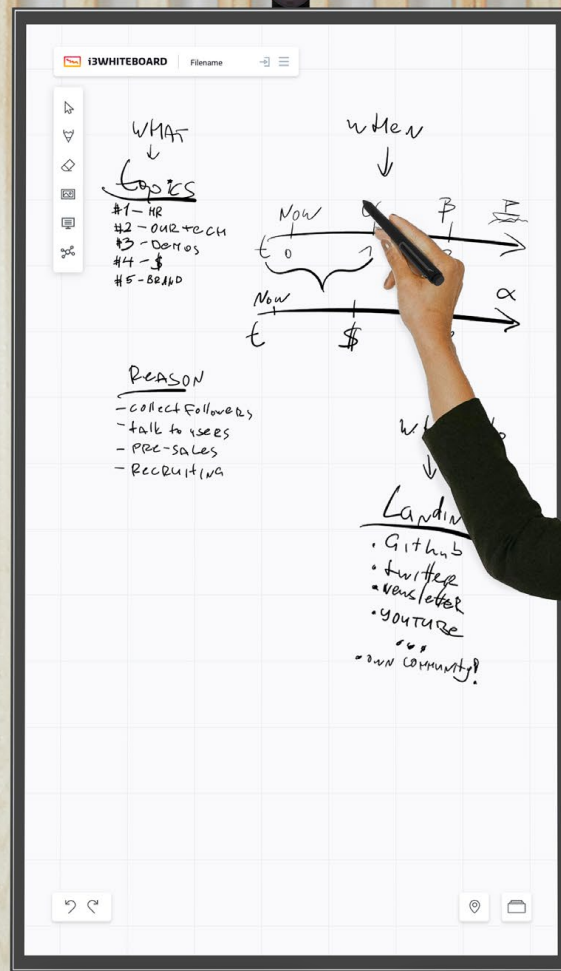 i3WHITEBOARD Filename
WHAT
topics
#1 - HR
#2 - OUR TECH
#3 - DEMOS
#4 - $
#5 - BRAND
WHEN
NOW β
t 0 1
NOW α
t $
REASON
- collect Followers
- talk to users
- PRE-SALES
- RECRUITING
Landin
• Github
• twitter
• Newsletter
• YOUTUBE
...
• OWN COMMUNITY?